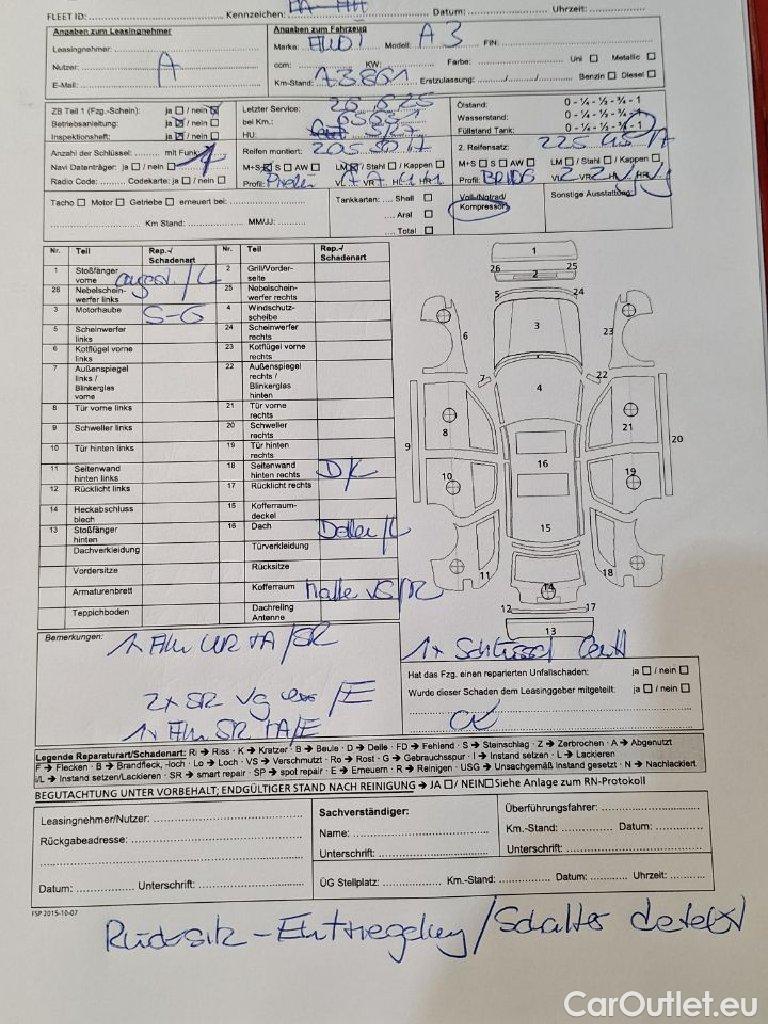 FLEET ID: Kennzeichen: Datum: Uhrzeit:
Angaben zum Leasingnehmer
Leasingnehmer:
Nutzer: A
E-Mail:
Angaben zum Fahrzeug
Marke: AUDI Modell: A3 FIN:
ccm: KW: Farbe: Uni Metallic
Km-Stand: 73861 Erstzulassung: Benzin Diesel
ZB Teil 1 (Fzg.-Schein): ja / nein
Betriebsanleitung: ja / nein
Inspektionsheft: ja / nein
Anzahl der Schlüssel: mit Funk
Navi Datenträger: ja / nein
Radio Code: Codekarte: ja / nein
Letzter Service:
bei Km.:
HU:
Reifen montiert:
M+S S AW LM / Stahl / Kappen
Profil: VL VR HL HR
Ölstand: 0 - ¼ - ½ - ¾ - 1
Wasserstand: 0 - ¼ - ½ - ¾ - 1
Füllstand Tank: 0 - ¼ - ½ - ¾ - 1
2. Reifensatz:
M+S S AW LM / Stahl / Kappen
Profil: VL VR HL HR
Tacho Motor Getriebe erneuert bei:
Km Stand: MM/JJ:
Tankkarten: Shell
Aral
Total
Voll-/Notrad/
Kompressor
Sonstige Ausstattung:
Nr. Teil Rep.-/ Schadenart Nr. Teil Rep.-/ Schadenart
1 Stoßfänger vorne 2 Grill/Vorder-seite
26 Nebelschein-werfer links 25 Nebelschein-werfer rechts
3 Motorhaube S-G 4 Windschutz-scheibe
5 Scheinwerfer links 24 Scheinwerfer rechts
6 Kotflügel vorne links 23 Kotflügel vorne rechts
7 Außenspiegel links / Blinkerglas vorne 22 Außenspiegel rechts / Blinkerglas hinten
8 Tür vorne links 21 Tür vorne rechts
9 Schweller links 20 Schweller rechts
10 Tür hinten links 19 Tür hinten rechts
11 Seitenwand hinten links 18 Seitenwand hinten rechts DK
12 Rücklicht links 17 Rücklicht rechts
14 Heckabschluss blech 15 Kofferraum-deckel
13 Stoßfänger hinten 16 Dach Delle/L
Dachverkleidung Türverkleidung
Vordersitze Rücksitze
Armaturenbrett Kofferraum Matte VS/R
Teppichboden Dachreling Antenne
1
26 25
2
5 24
3
6 23
7 22
4
8 21
9 20
10 19
16
15
11 18
14
12 17
13
Bemerkungen:
2x SR /E
Hat das Fzg. einen reparierten Unfallschaden: ja / nein
Wurde dieser Schaden dem Leasinggeber mitgeteilt: ja / nein
OK
Legende Reparaturart/Schadenart: Ri → Riss · K → Kratzer · B → Beule · D → Delle · FD → Fehlend · S → Steinschlag · Z → Zerbrochen · A → Abgenutzt
F → Flecken · B → Brandfleck, -loch · Lo → Loch · VS → Verschmutzt · Ro → Rost · G → Gebrauchsspur · I → Instand setzen · L → Lackieren
I/L → Instand setzen/Lackieren · SR → smart repair · SP → spot repair · E → Erneuern · R → Reinigen · USG → Unsachgemäß instand gesetzt · N → Nachlackiert
BEGUTACHTUNG UNTER VORBEHALT; ENDGÜLTIGER STAND NACH REINIGUNG → JA / NEIN Siehe Anlage zum RN-Protokoll
Leasingnehmer/Nutzer:
Rückgabeadresse:
Datum: Unterschrift:
Sachverständiger:
Name:
Unterschrift:
Überführungsfahrer:
Km.-Stand: Datum:
Unterschrift:
ÜG Stellplatz: Km.-Stand: Datum: Uhrzeit:
FSP 2015-10-07
Rücksitz-Entriegelung/Schalter defekt
CarOutlet.eu